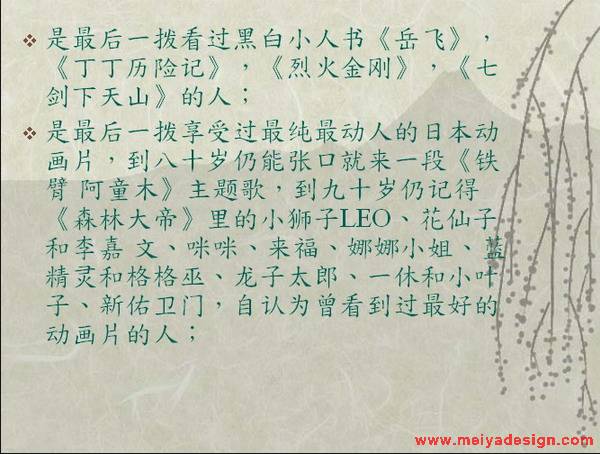 是最后一拨看过黑白小人书《岳飞》,
《丁丁历险记》,《烈火金刚》,《七
剑下天山》的人;
是最后一拨享受过最纯最动人的日本动
画片,到八十岁仍能张口就来一段《铁
臂 阿童木》主题歌,到九十岁仍记得
《森林大帝》里的小狮子LEO、花仙子
和李嘉 文、咪咪、来福、娜娜小姐、蓝
精灵和格格巫、龙子太郎、一休和小叶
子、新佑卫门,自认为曾看到过最好的
动画片的人;
www.meiyadesign.com